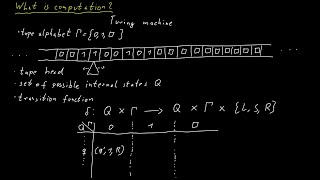 What is computation?
Turing machine
· tape alphabet Γ = {0, 1, □}
... □ □ □ □ 0 1 1 0 1 0 0 0 □ □ □ □ □ □ □ ...
· tape head
· set of possible internal states Q
· transition function
δ: Q × Γ → Q × Γ × {L, S, R}
Q Γ 0 1 □
q (q', 1, R)